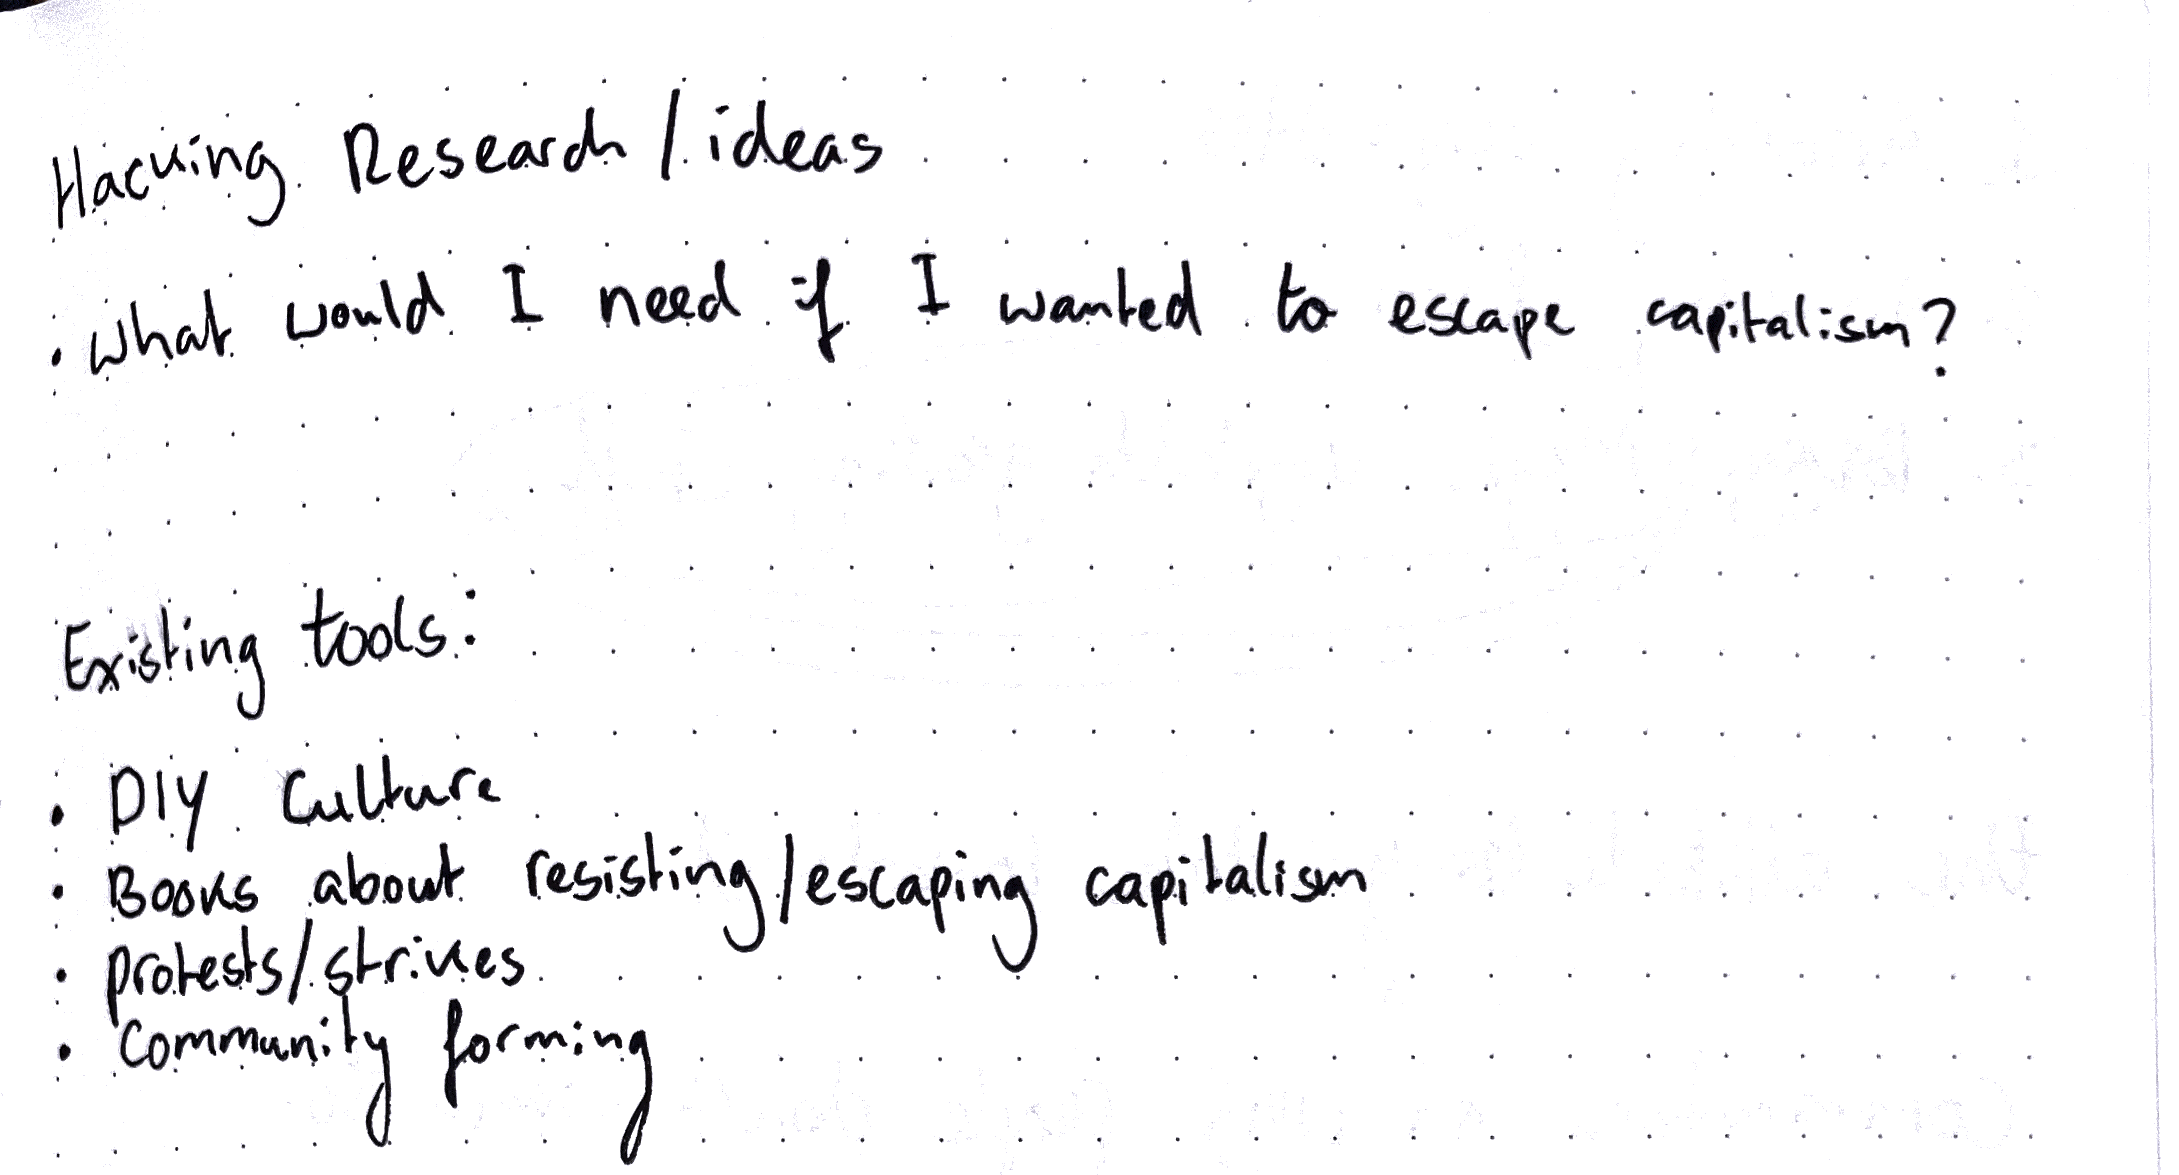 Hacking Research/ideas
• What would I need if I wanted to escape capitalism?
Existing tools:
• DIY Culture
• Books about resisting/escaping capitalism
• protests/strikes
• Community forming